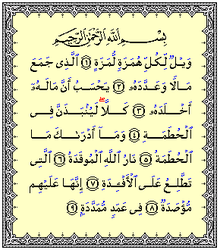 بِسْمِ اللَّهِ الرَّحْمَٰنِ الرَّحِيمِ
وَيْلٌ لِّكُلِّ هُمَزَةٍ لُّمَزَةٍ ﴿١﴾ الَّذِى جَمَعَ
مَالًا وَعَدَّدَهُۥ ﴿٢﴾ يَحْسَبُ أَنَّ مَالَهُۥٓ
أَخْلَدَهُۥ ﴿٣﴾ كَلَّا ۖ لَيُنۢبَذَنَّ فِى
الْحُطَمَةِ ﴿٤﴾ وَمَآ أَدْرَىٰكَ مَا
الْحُطَمَةُ ﴿٥﴾ نَارُ اللَّهِ الْمُوقَدَةُ ﴿٦﴾ الَّتِى
تَطَّلِعُ عَلَى الْأَفْـِٔدَةِ ﴿٧﴾ إِنَّهَا عَلَيْهِم
مُّؤْصَدَةٌ ﴿٨﴾ فِى عَمَدٍ مُّمَدَّدَةٍۭ ﴿٩﴾